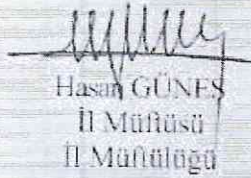 Hasan GÜNEŞ
İl Müftüsü
İl Müftülüğü